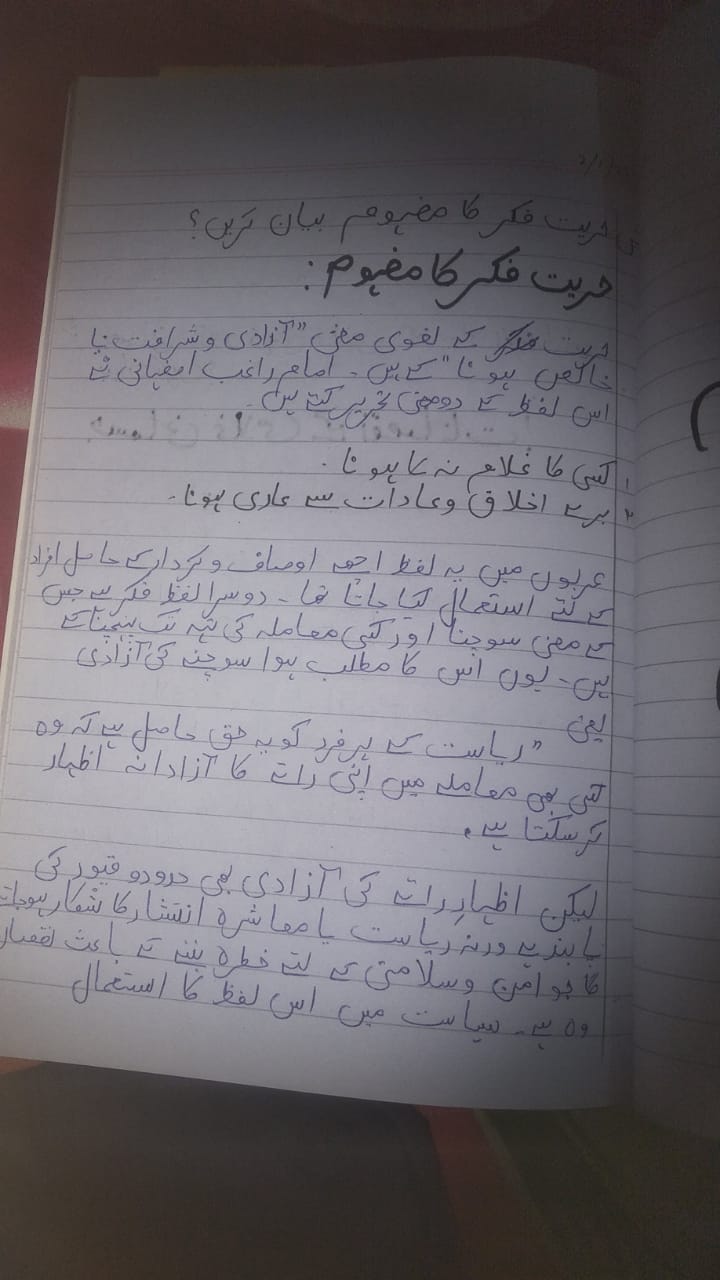 حریت فکر کا مفہوم بیان کریں؟
حریت فکر کا مفہوم :
حریت کے لغوی معنی "آزادی و شرافت یا
خالص ہونا" کے ہیں۔ امام راغب اصفہانی نے
اس لفظ کے دو معنی تحریر کئے ہیں۔
۱ کسی کا غلام نہ ہونا۔
۲ برے اخلاق و عادات سے عاری ہونا۔
عربوں میں یہ لفظ اچھے اوصاف و کردار کے حامل افراد
کے لئے استعمال کیا جاتا تھا۔ دوسرا لفظ فکر ہے جس
کے معنی سوچنا اور کسی معاملہ کی تہہ تک پہنچنا کے
ہیں۔ یوں اس کا مطلب ہوا سوچنے کی آزادی
یعنی
"ریاست کے ہر فرد کو یہ حق حاصل ہے کہ وہ
کسی بھی معاملہ میں اپنی رائے کا آزادانہ اظہار
کر سکتا ہے۔
لیکن اظہارِ رائے کی آزادی بھی حدود و قیود کی
پابند ہے ورنہ ریاست یا معاشرہ انتشار کا شکار ہو جائے
گا جو امن و سلامتی کے لئے خطرہ بننے کے باعث نقصان
دہ ہے۔ سیاست میں اس لفظ کا استعمال